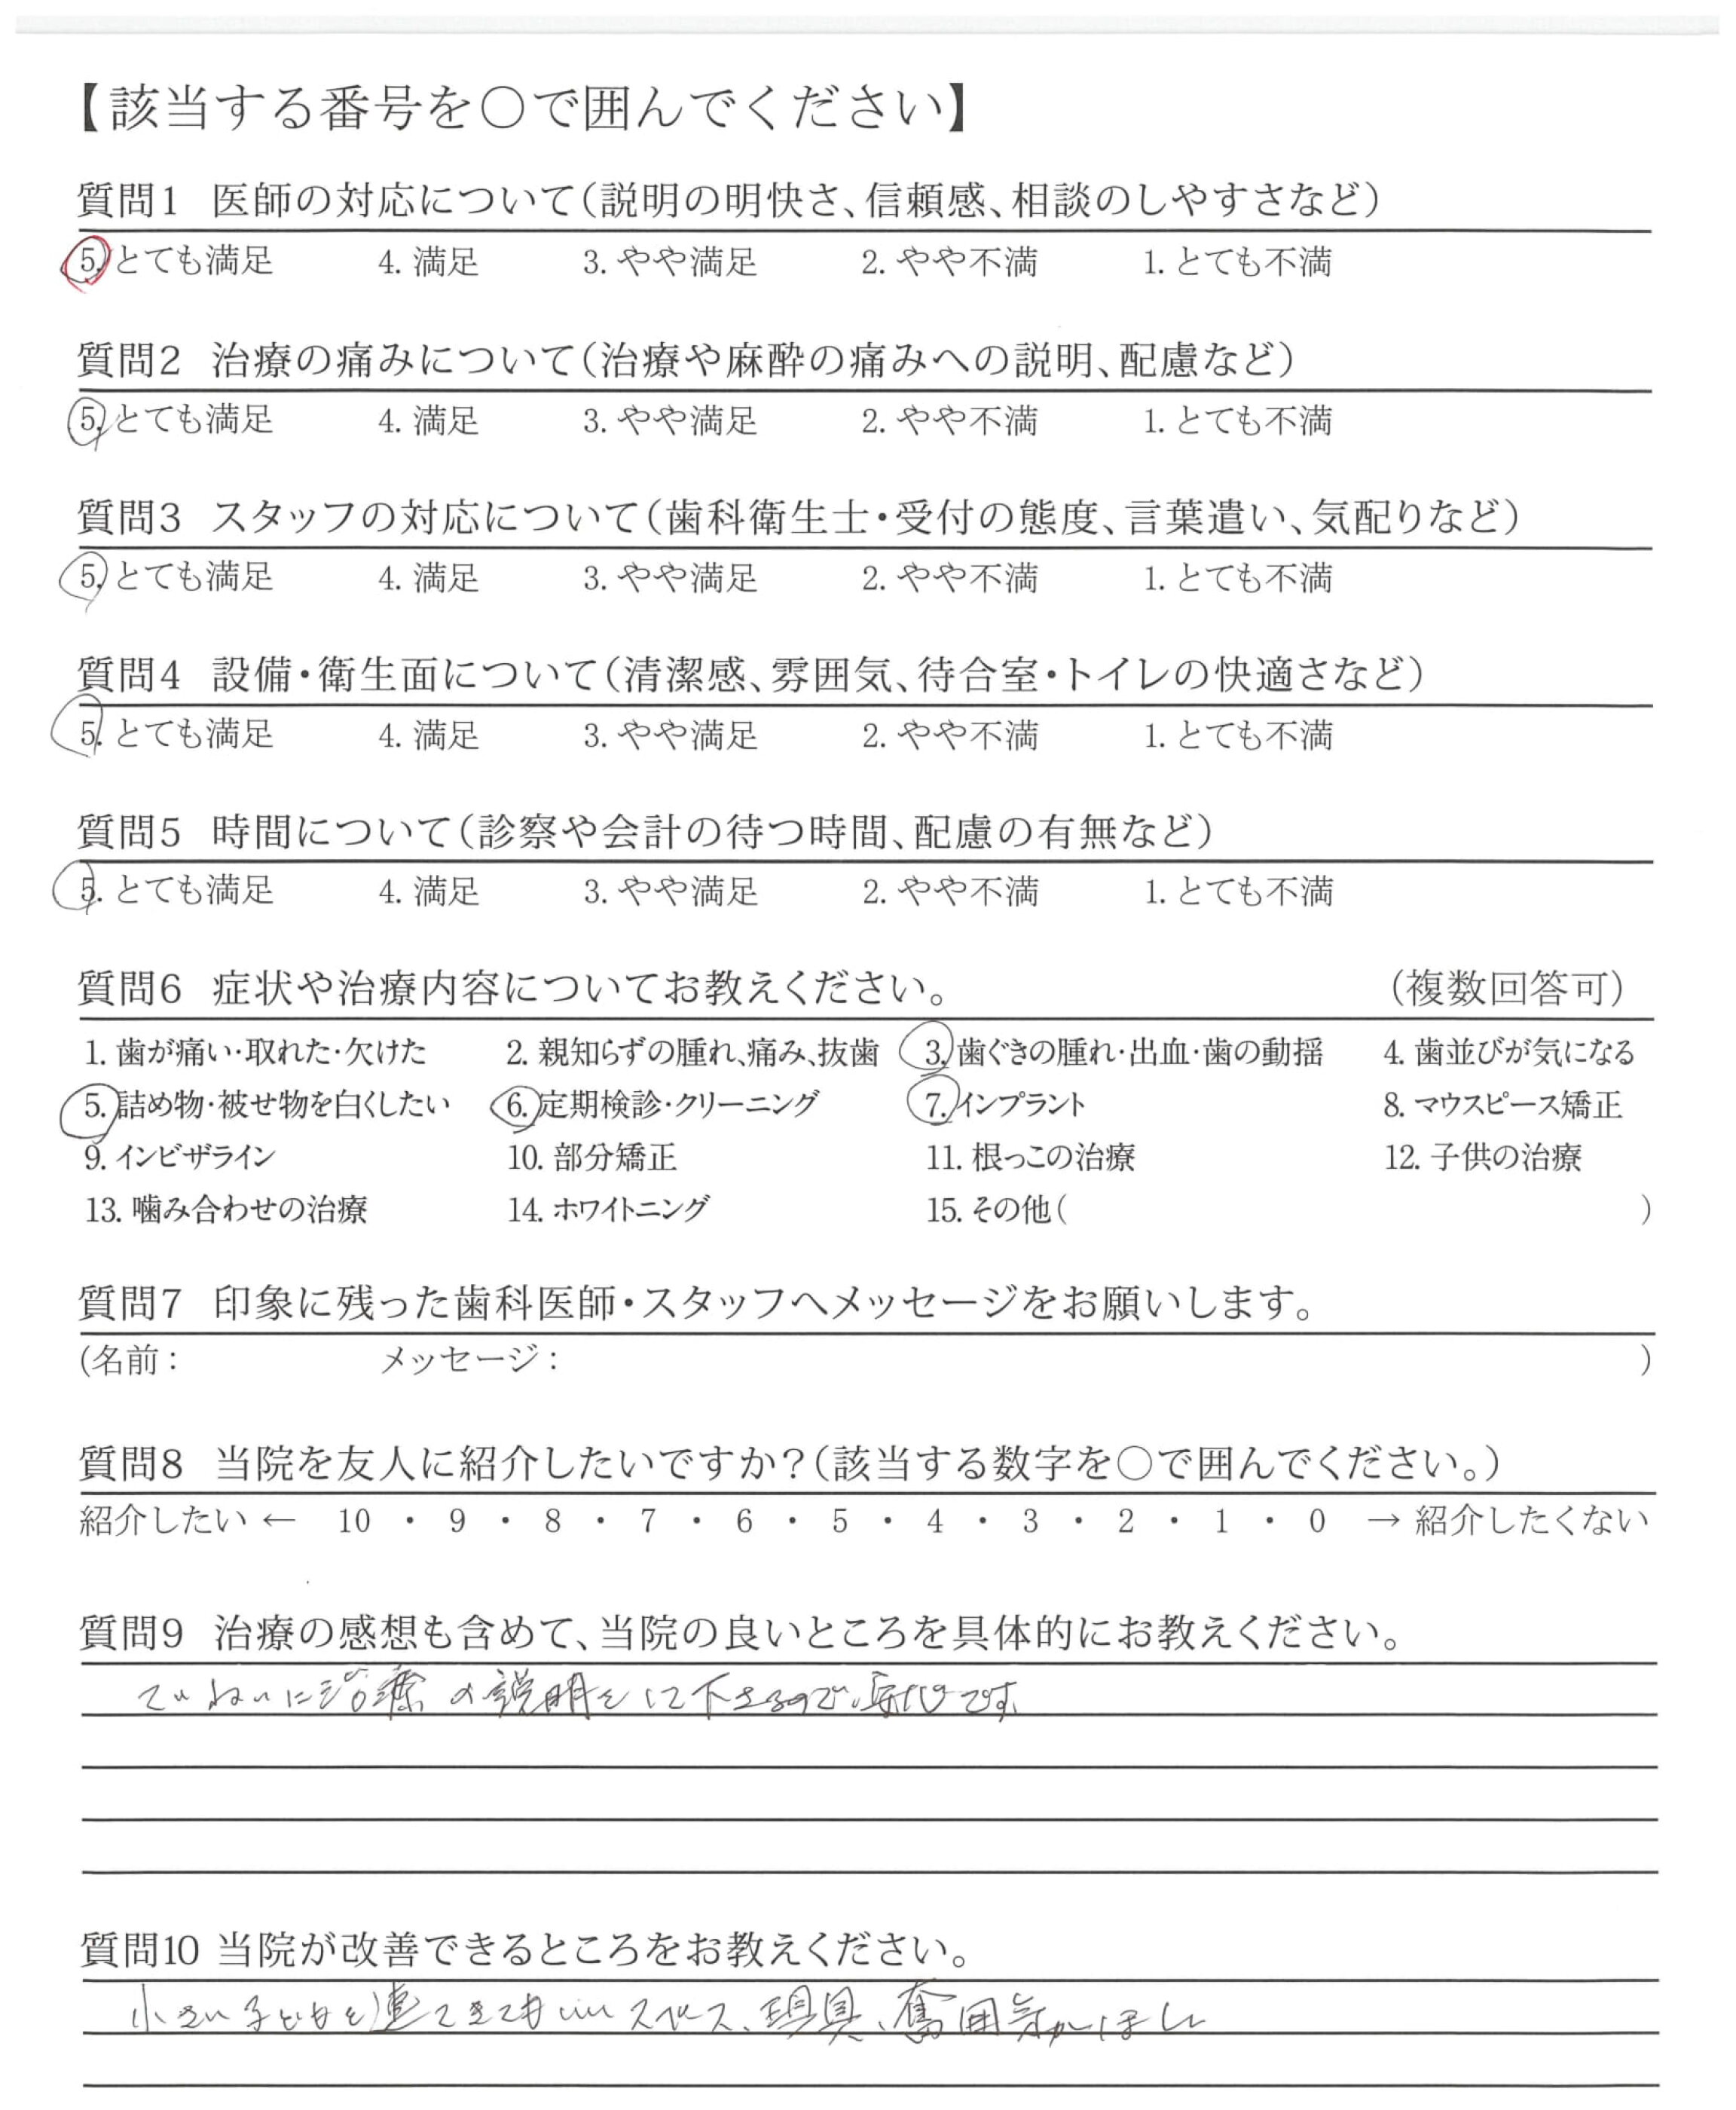 【該当する番号を○で囲んでください】
質問1 医師の対応について(説明の明快さ、信頼感、相談のしやすさなど)
5. とても満足 4. 満足 3. やや満足 2. やや不満 1. とても不満
質問2 治療の痛みについて(治療や麻酔の痛みへの説明、配慮など)
5. とても満足 4. 満足 3. やや満足 2. やや不満 1. とても不満
質問3 スタッフの対応について(歯科衛生士・受付の態度、言葉遣い、気配りなど)
5. とても満足 4. 満足 3. やや満足 2. やや不満 1. とても不満
質問4 設備・衛生面について(清潔感、雰囲気、待合室・トイレの快適さなど)
5. とても満足 4. 満足 3. やや満足 2. やや不満 1. とても不満
質問5 時間について(診察や会計の待つ時間、配慮の有無など)
5. とても満足 4. 満足 3. やや満足 2. やや不満 1. とても不満
質問6 症状や治療内容についてお教えください。 (複数回答可)
1. 歯が痛い・取れた・欠けた 2. 親知らずの腫れ、痛み、抜歯 3. 歯ぐきの腫れ・出血・歯の動揺 4. 歯並びが気になる
5. 詰め物・被せ物を白くしたい 6. 定期検診・クリーニング 7. インプラント 8. マウスピース矯正
9. インビザライン 10. 部分矯正 11. 根っこの治療 12. 子供の治療
13. 噛み合わせの治療 14. ホワイトニング 15. その他( )
質問7 印象に残った歯科医師・スタッフへメッセージをお願いします。
(名前: メッセージ: )
質問8 当院を友人に紹介したいですか?(該当する数字を○で囲んでください。)
紹介したい ← 10 ・ 9 ・ 8 ・ 7 ・ 6 ・ 5 ・ 4 ・ 3 ・ 2 ・ 1 ・ 0 → 紹介したくない
質問9 治療の感想も含めて、当院の良いところを具体的にお教えください。
ていねいに治療の説明をして下さるので安心です
質問10 当院が改善できるところをお教えください。
小さい子どもを連てきてもいいスペース、玩具、雰囲気がほしい